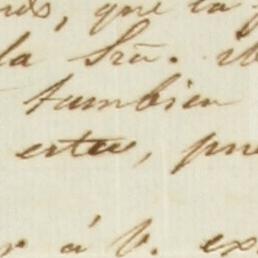 que la
la Srā.
tambien
estu, pu
á V. ex